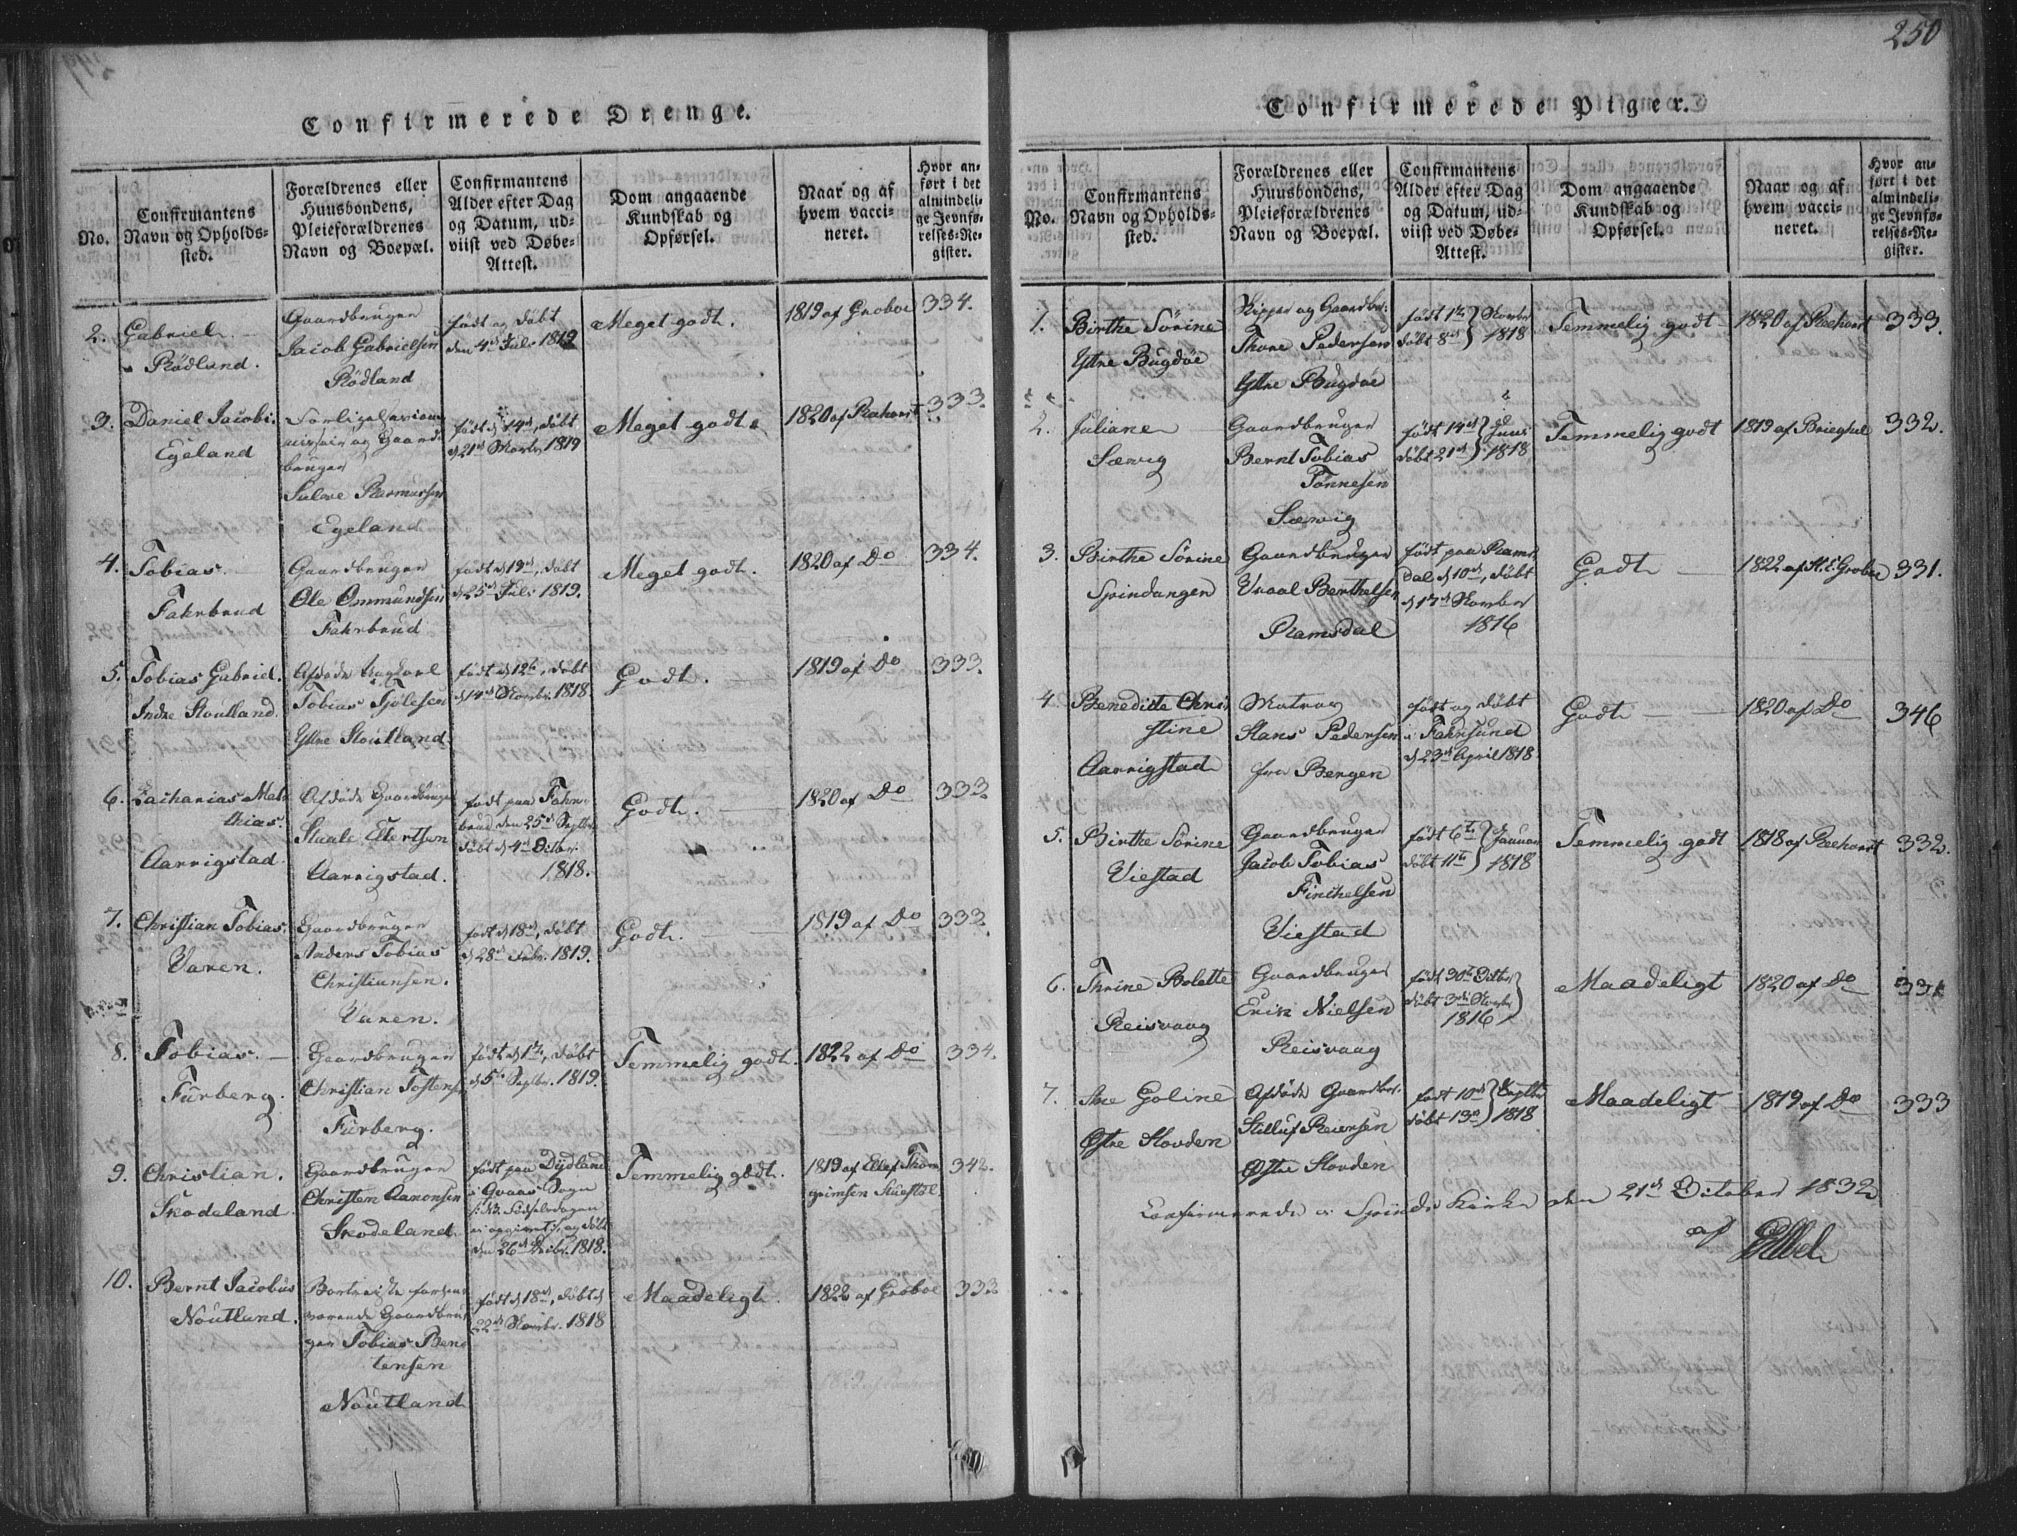 250
Confirmerede Drenge.
No.
Confirmantens
Navn og Opholds-
sted.
Forældrenes eller
Huusbondens,
Pleieforældrenes
Navn og Boepæl.
Confirmantens
Alder efter Dag
og Datum, ud-
viist ved Døbe-
Attest.
Dom angaaende
Kundskab og
Opførsel.
Naar og af
hvem vacci-
neret.
Hvor an-
ført i det
almindeli-
ge Jevnfø-
relses-Re-
gister.
2. Gabriel
Rödland.
Gaardbruger
Jacob Gabrielsen
Rödland
født og døbt
den 4de Juli 1819
Meget godt.
1819 af Groboe
334.
3. Daniel Jacob
Egeland
og Gaard-
bruger
Salve Rasmussen
Egeland
født d 14de, døbt
d 21de Novbr 1819
Meget godt.
1820 af Reehorst
333.
4. Tobias
Fahrbrud
Gaardbruger
Ole Ommundsen
Fahrbrud
født d 19de, døbt
d 25de Juli 1819.
Meget godt.
1820 af Do
334.
5. Tobias Gabriel.
Indre Skoutland.
Afdøde
Tobias Tjölesen
Yttre Skoutland.
født d 12te, døbt
d 14de Novbr. 1818.
Godt.
1819 af Do
333.
6. Zacharias Mat-
thias.
Aarrigstad.
Afdøde Gaardbruger
Staale Ellertsen
Aarrigstad.
født paa Fahr-
brud den 25de Septbr
døbt d 4de Octbr.
1818.
Godt.
1820 af Do
333
7. Christian Tobias.
Varen.
Gaardbruger
Anders Tobias
Christiansen.
Varen.
født d 18de, døbt
d 28de Febr. 1819.
Godt.
1819 af Do
333.
8. Tobias.
Fürberg.
Gaardbruger
Christian Tostensen
Fürberg.
født d 1te, døbt
d 5te Septbr. 1819.
Temmelig godt.
1822 af Do
334.
9. Christian.
Skodeland.
Gaardbruger
Christen Aanonsen
Skodeland.
født paa Dydland
i Qvaas Sogn
Födselsdagen
ei opgivet, og døbt
den 26de Decbr. 1818.
Temmelig godt.
1819 af Ellef Thor-
grimsen Stuestöl.
342.
10. Bernt Jacobus
Nöutland.
Bortreiste forhen-
værende Gaardbru-
ger Tobias Ben-
tensen
Nöutland
født d 18de, døbt d
22de Novbr. 1818
Maadeligt.
1822 af Groboe
333
Confirmerede Piger.
No.
Confirmantens
Navn og Opholds-
sted.
Forældrenes eller
Huusbondens,
Pleieforældrenes
Navn og Boepæl.
Confirmantens
Alder efter Dag
og Datum, ud-
viist ved Døbe-
Attest.
Dom angaaende
Kundskab og
Opførsel.
Naar og af
hvem vacci-
neret.
Hvor an-
ført i det
almindeli-
ge Jevnfø-
relses-Re-
gister.
1. Birthe Sörine
Yttre Bugdöe
Skipper og Gaardbr.
Thore Pedersen
Yttre Bugdöe
født 1te } Novbr
døbt 8de } 1818
Temmelig godt
1820 af Reehorst
333.
2. Juliane
Sævig
Gaardbruger
Bernt Tobias
Tönnesen
Sævig
født 14de } Juni
døbt 21de } 1818
Temmelig godt
1819 af Brieghel
332.
3. Birthe Sörine
Sprindangen
Gaardbruger
Vraal Berthelsen
Ramsdal
født paa Rams-
dal d 10de, døbt
d 17de Novbr
1816
Godt
1822 af H. E. Groboe
331.
4. Benedicte Chri-
stine
Aarrigstad
Matros
Hans Pedersen
fra Bergen
født og døbt
i Fahrsund
d 23de April 1818.
Godt
1820 af Do
346
5. Birthe Sörine
Viestad
Gaardbruger
Jacob Tobias
Finchelsen
Viestad
født 6te } Januar
døbt 11te } 1818
Temmelig godt
1818 af Reehorst
332.
6. Thrine Bolette
Reisvaag
Gaardbruger
Erik Nielsen
Reisvaag
født 30te Octbr
døbt 3die Novbr
1816
Maadeligt
1820 af Do
331
7. Ane Goline
Østre Hovden
Afdøde Gaardbr.
Stilluf Reiersen
Østre Hovden
født 10de } Septbr
døbt 13de } 1818
Maadeligt
1819 af Do
333
Confirmerede i Spinds Kirke den 21de October 1832
af